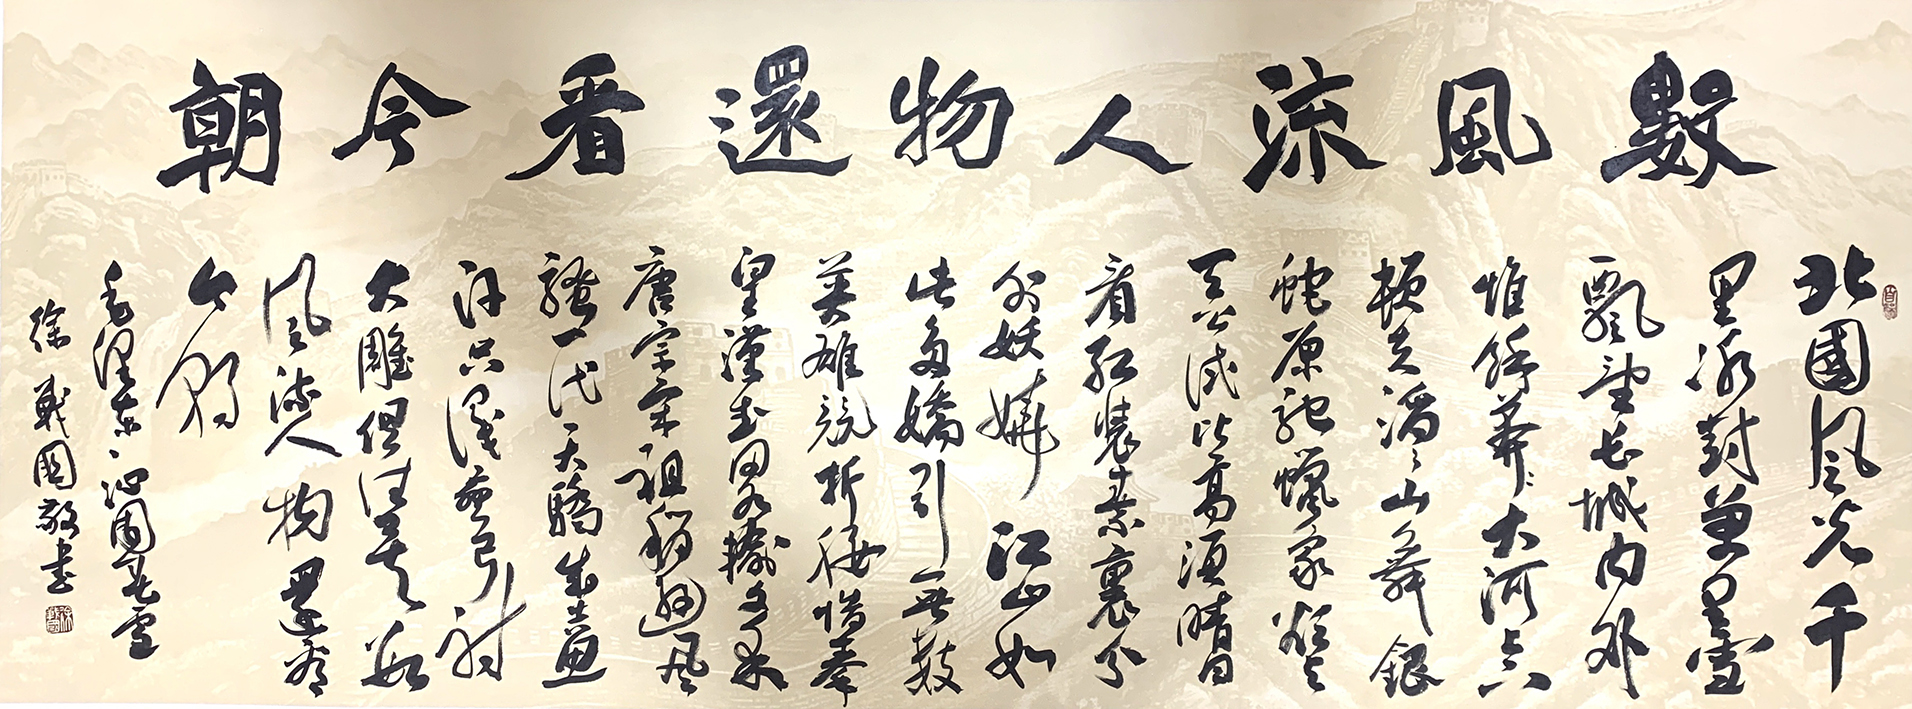 數風流人物還看今朝
北國風光千
里冰封萬里雪
飄望長城內外
惟餘莽々大河上下
頓失滔々山舞銀
蛇原馳蠟象欲與
天公試比高須晴日
看紅裝素裹分
外妖嬈江山如
此多嬌引無數
英雄競折腰惜秦
皇漢武畧輸文采
唐宗宋祖稍遜風
騷一代天驕成吉思
汗只識彎弓射
大雕俱往矣數
風流人物還看
今朝
毛澤東沁園春雪
徐戰國敬書